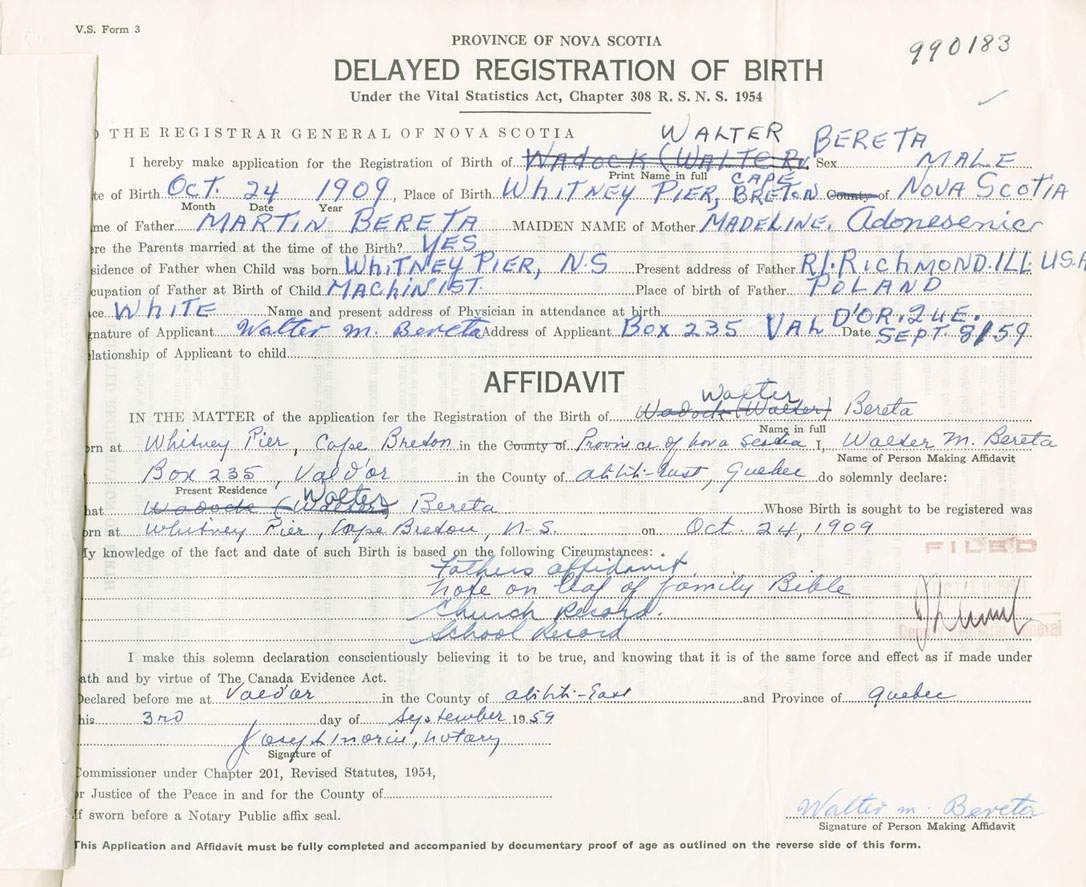 V.S. Form 3
990183
PROVINCE OF NOVA SCOTIA
DELAYED REGISTRATION OF BIRTH
Under the Vital Statistics Act, Chapter 308 R. S. N. S. 1954
THE REGISTRAR GENERAL OF NOVA SCOTIA
WALTER BERETA
I hereby make application for the Registration of Birth of WADOCK (WALTER) Sex MALE
Print Name in full
te of Birth OCT. 24 1909, Place of Birth WHITNEY PIER, CAPE BRETON County of NOVA SCOTIA
Month Date Year
me of Father MARTIN BERETA MAIDEN NAME of Mother MADELINE.
re the Parents married at the time of the Birth? YES
sidence of Father when Child was born WHITNEY PIER, N.S Present address of Father R1. RICHMOND. ILL USA
cupation of Father at Birth of Child MACHINIST. Place of birth of Father POLAND
ce WHITE Name and present address of Physician in attendance at birth
gnature of Applicant Walter M. Bereta Address of Applicant BOX 235 VAL D'OR. QUE. Date SEPT. 8/59
lationship of Applicant to child
AFFIDAVIT
Walter
IN THE MATTER of the application for the Registration of the Birth of Wadock (Walter) Bereta
Name in full
rn at Whitney Pier, Cape Breton in the County of Province of Nova Scotia I, Walter M. Bereta
Name of Person Making Affidavit
Box 235, Vald'or in the County of Abitibi-East, Quebec do solemnly declare:
Present Residence
Walter
hat Wadock (Walter) Bereta Whose Birth is sought to be registered was
rn at Whitney Pier, Cape Breton, N-S. on Oct. 24, 1909
My knowledge of the fact and date of such Birth is based on the following Circumstances:
Fathers affidavit
Note on leaf of family Bible
Church Record.
School Record
FILED
I make this solemn declaration conscientiously believing it to be true, and knowing that it is of the same force and effect as if made under
ath and by virtue of The Canada Evidence Act.
Declared before me at Vald'or in the County of Abitibi-East and Province of Quebec
his 3rd day of September 1959
notary
Signature of
Commissioner under Chapter 201, Revised Statutes, 1954,
r Justice of the Peace in and for the County of
If sworn before a Notary Public affix seal.
Walter M. Bereta
Signature of Person Making Affidavit
This Application and Affidavit must be fully completed and accompanied by documentary proof of age as outlined on the reverse side of this form.